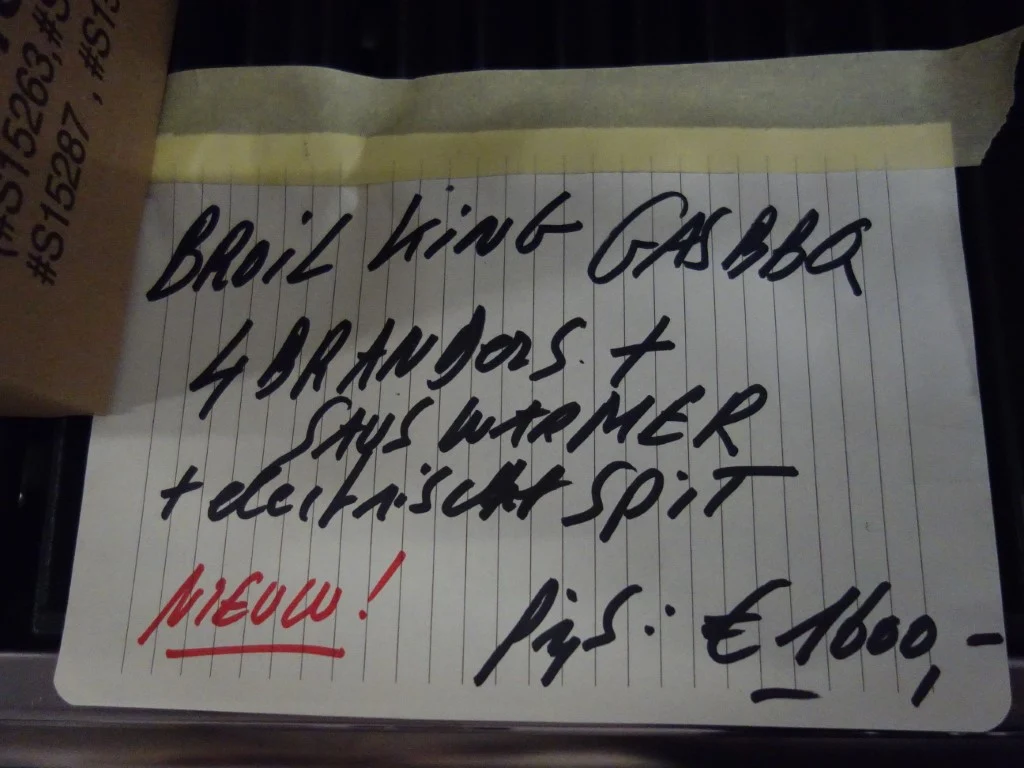 (#S15263, #S
#S15287, #S15
BROIL KING GASBBQ
4 BRANDERS +
SAUS WARMER
+ electrisch SPIT
NIEUW!
Prijs: € 1600,-